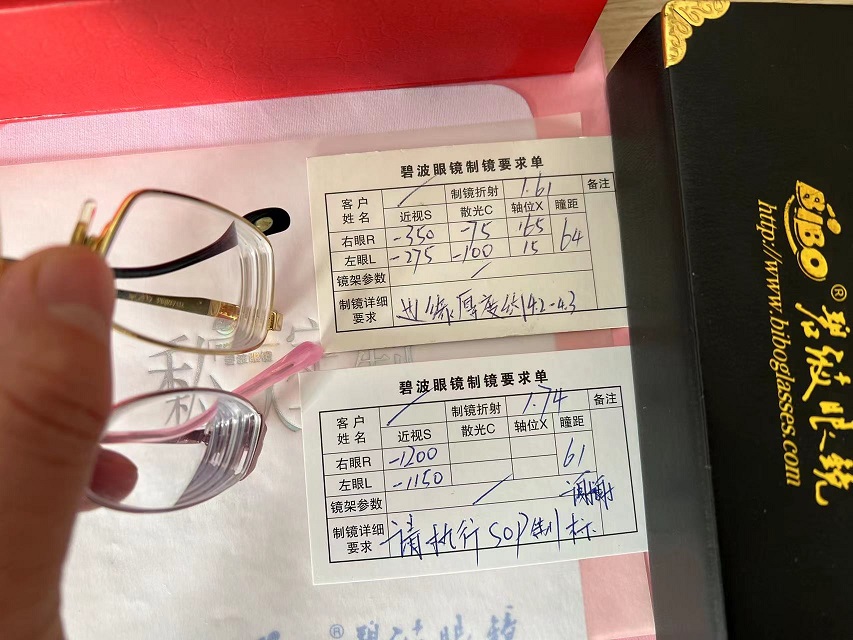 碧波眼镜制镜要求单
客户姓名 制镜折射 1.61 备注
近视S 散光C 轴位X 瞳距
右眼R -350 -75 165 64
左眼L -275 -100 15
镜架参数
制镜详细要求 边缘厚度约4.2-4.3
碧波眼镜制镜要求单
客户姓名 制镜折射 1.74 备注
近视S 散光C 轴位X 瞳距
右眼R -1200 61
左眼L -1150
镜架参数 谢谢
制镜详细要求 请执行SOP制标
BiBO® 碧波眼镜
http://www.biboglasses.com
碧波眼镜
私定制
® 碧波眼镜